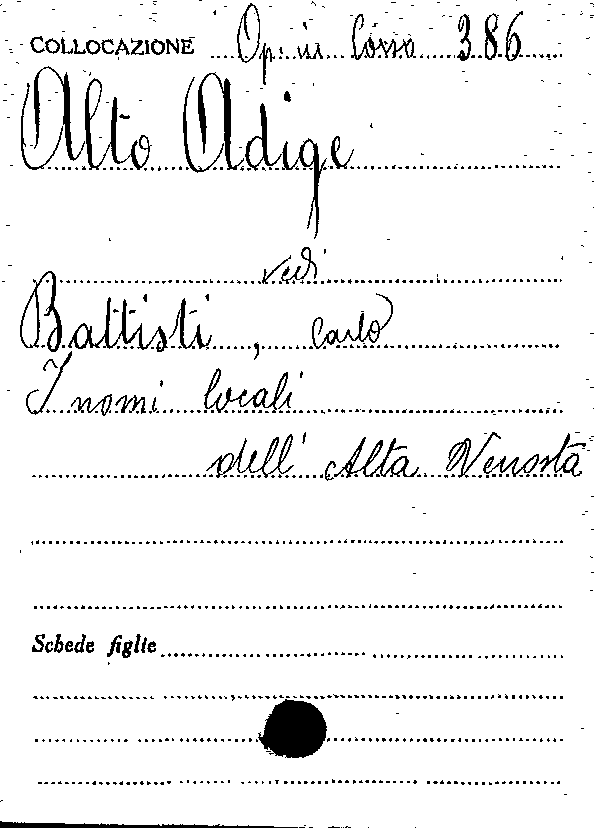 COLLOCAZIONE Op. in Corso 386
Alto Adige
vedi
Battisti, Carlo
I nomi locali
dell' Alta Venosta
Schede figlie